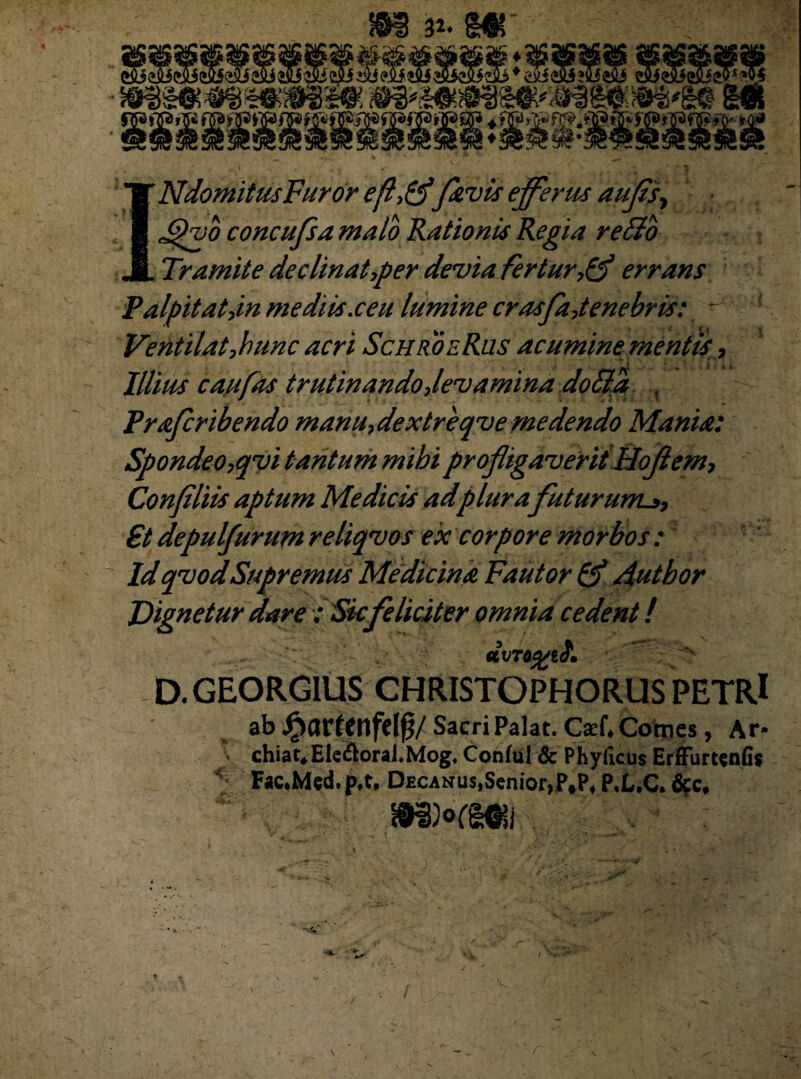 32.
INdomitus Furor est, & sævis efferus ausis,
Qvô concussa malô Rationis Regia rectô
Tramite declinat, per devia fertur, & errans
Palpitat, in mediis. ceu lumine crassa, tenebris:
Ventilat, hunc acri SCHRÖERUS acumine mentis,
Illius causas trutinando, levamina docta
Præscribendo manu, dextreqve medendo Maniæ:
Spondeo, qvi tantum mihi profligaverit Hostem,
Consiliis aptum Medicis ad plura futurum,
Et depulsurum reliqvos ex corpore morbos:
Id qvod Supremus Medicinæ Fautor & Author
Dignetur dare: Sic feliciter omnia cedent!
αὐτοσχεδ.
D. GEORGIUS CHRISTOPHORUS PETRI
ab Hartenfelß/ Sacri Palat. Cæs. Comes, Ar-
chiat. Electoral. Mog. Consul & Physicus Erffurtensis
Fac. Med. p. t. DECANUS, Senior, P. P. P. L. C. &c.